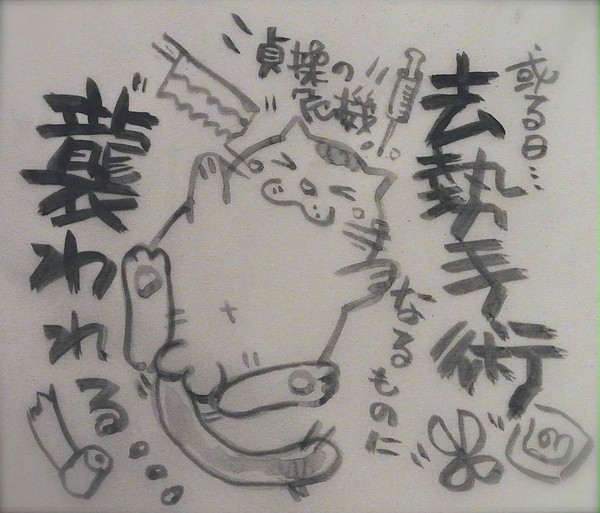 或る日…
去勢手術
なるものに
貞操の
危機!
襲われる…